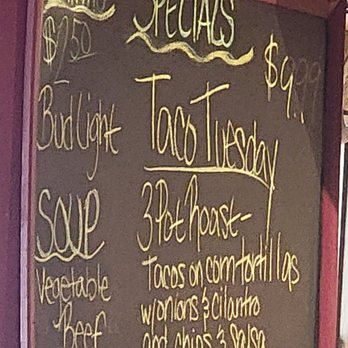 $2.50
Bud Light
SOUP
Vegetable
Beef
SPECIALS
$9.99
Taco Tuesday
3 Pot Roast-
Tacos on corn tortillas
w/onions & cilantro
and chips & salsa